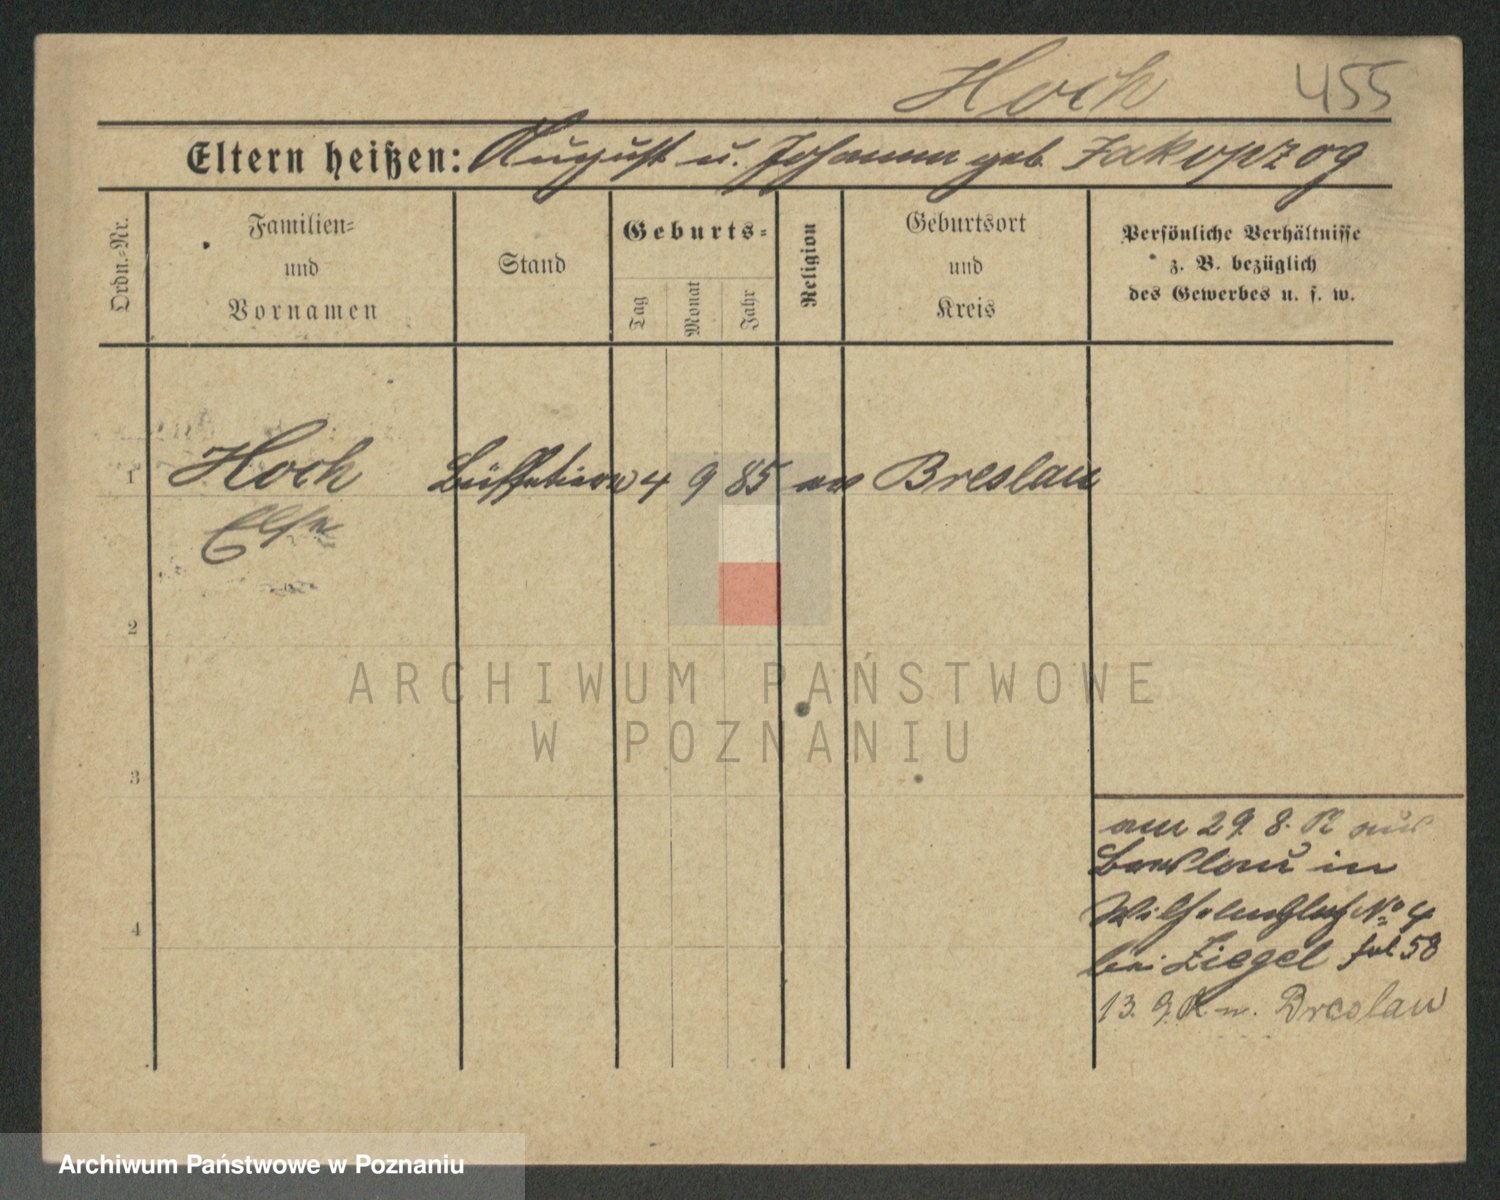 Hoch 455
Eltern heißen: August u. Johanna geb. Jakopzog
Ordn.-Nr.
Familien- und Vornamen
Stand
Geburts-
Tag
Monat
Jahr
Religion
Geburtsort und Kreis
Persönliche Verhältnisse
z. B. bezüglich
des Gewerbes u. s. w.
1 Hoch 4 9 85 Breslau
Else
2
3
4
am 29. 8. R aus
Breslau in
No 4
bei Ziegel fol 58
13. 9. R n. Breslau
ARCHIWUM PAŃSTWOWE
W POZNANIU
Archiwum Państwowe w Poznaniu